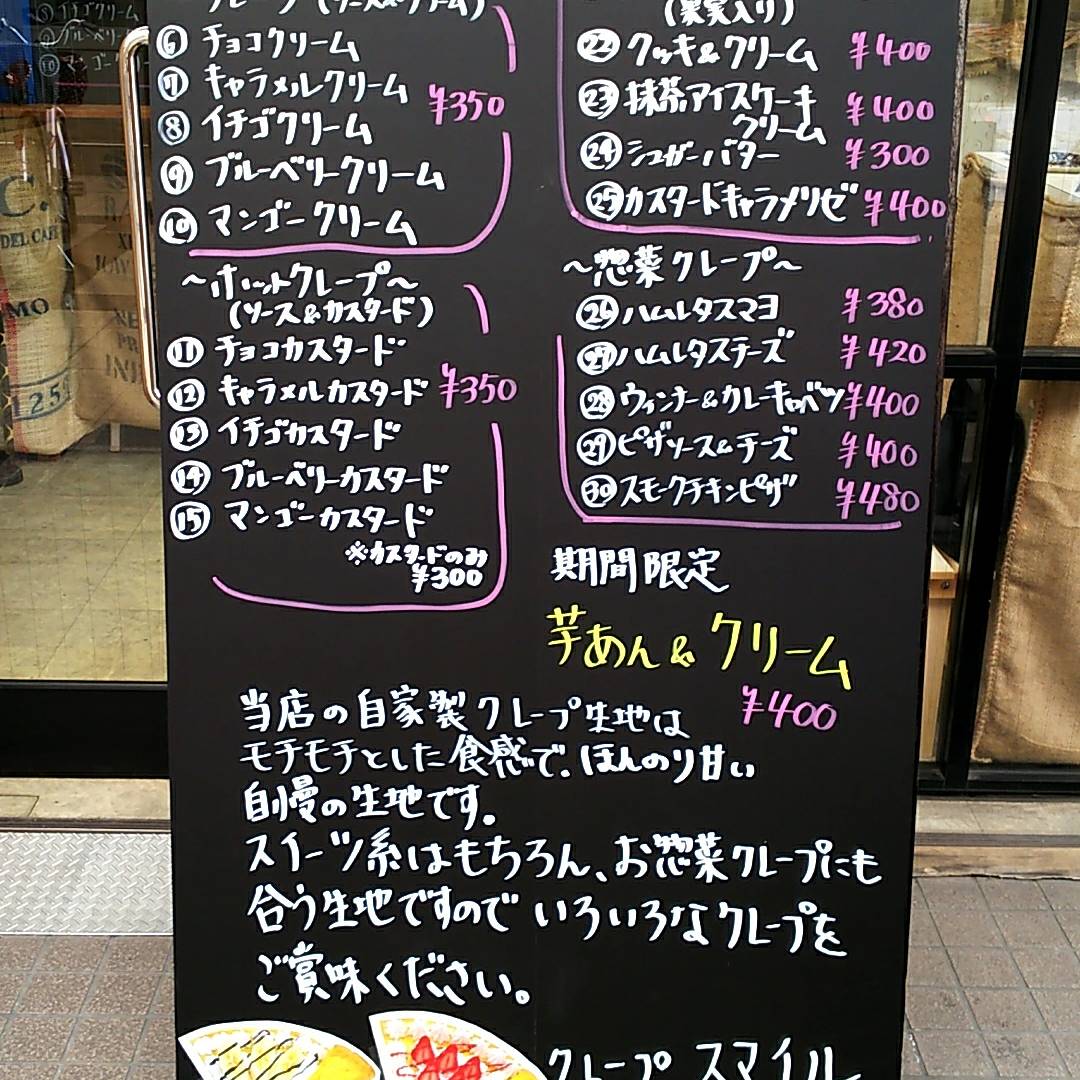 クレープ(ソース&クリーム)
⑥ チョコクリーム
⑦ キャラメルクリーム
¥350
⑧ イチゴクリーム
⑨ ブルーベリークリーム
⑩ マンゴークリーム
～ホットクレープ～
(ソース&カスタード)
⑪ チョコカスタード
⑫ キャラメルカスタード ¥350
⑬ イチゴカスタード
⑭ ブルーベリーカスタード
⑮ マンゴーカスタード
※カスタードのみ
¥300
(果実入り)
㉒ クッキ&クリーム ¥400
㉓ 抹茶アイスケーキ
クリーム ¥400
㉔ シュガーバター ¥300
㉕ カスタードキャラメリゼ ¥400
～惣菜クレープ～
㉖ ハムレタスマヨ ¥380
㉗ ハムレタスチーズ ¥420
㉘ ウィンナー&カレーキャベツ ¥400
㉙ ピザソース&チーズ ¥400
㉚ スモークチキンピザ ¥480
期間限定
芋あん&クリーム
¥400
当店の自家製クレープ生地は
モチモチとした食感で、ほんのり甘い
自慢の生地です。
スイーツ系はもちろん、お惣菜クレープにも
合う生地ですので いろいろなクレープを
ご賞味ください。
クレープ スマイル
⑧ イチゴクリーム
⑨ ブルーベリー
⑩ マンゴー
C.
DEL CAFE
MO